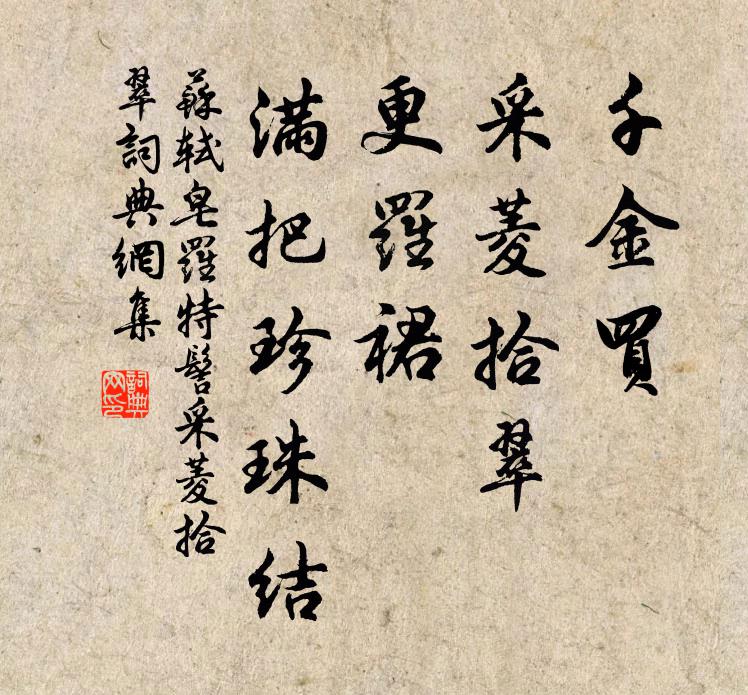 千金買
采菱拾翠
更羅裙
滿把珍珠結
蘇軾皂羅特髻采菱拾
翠詞典網集
詞典网印